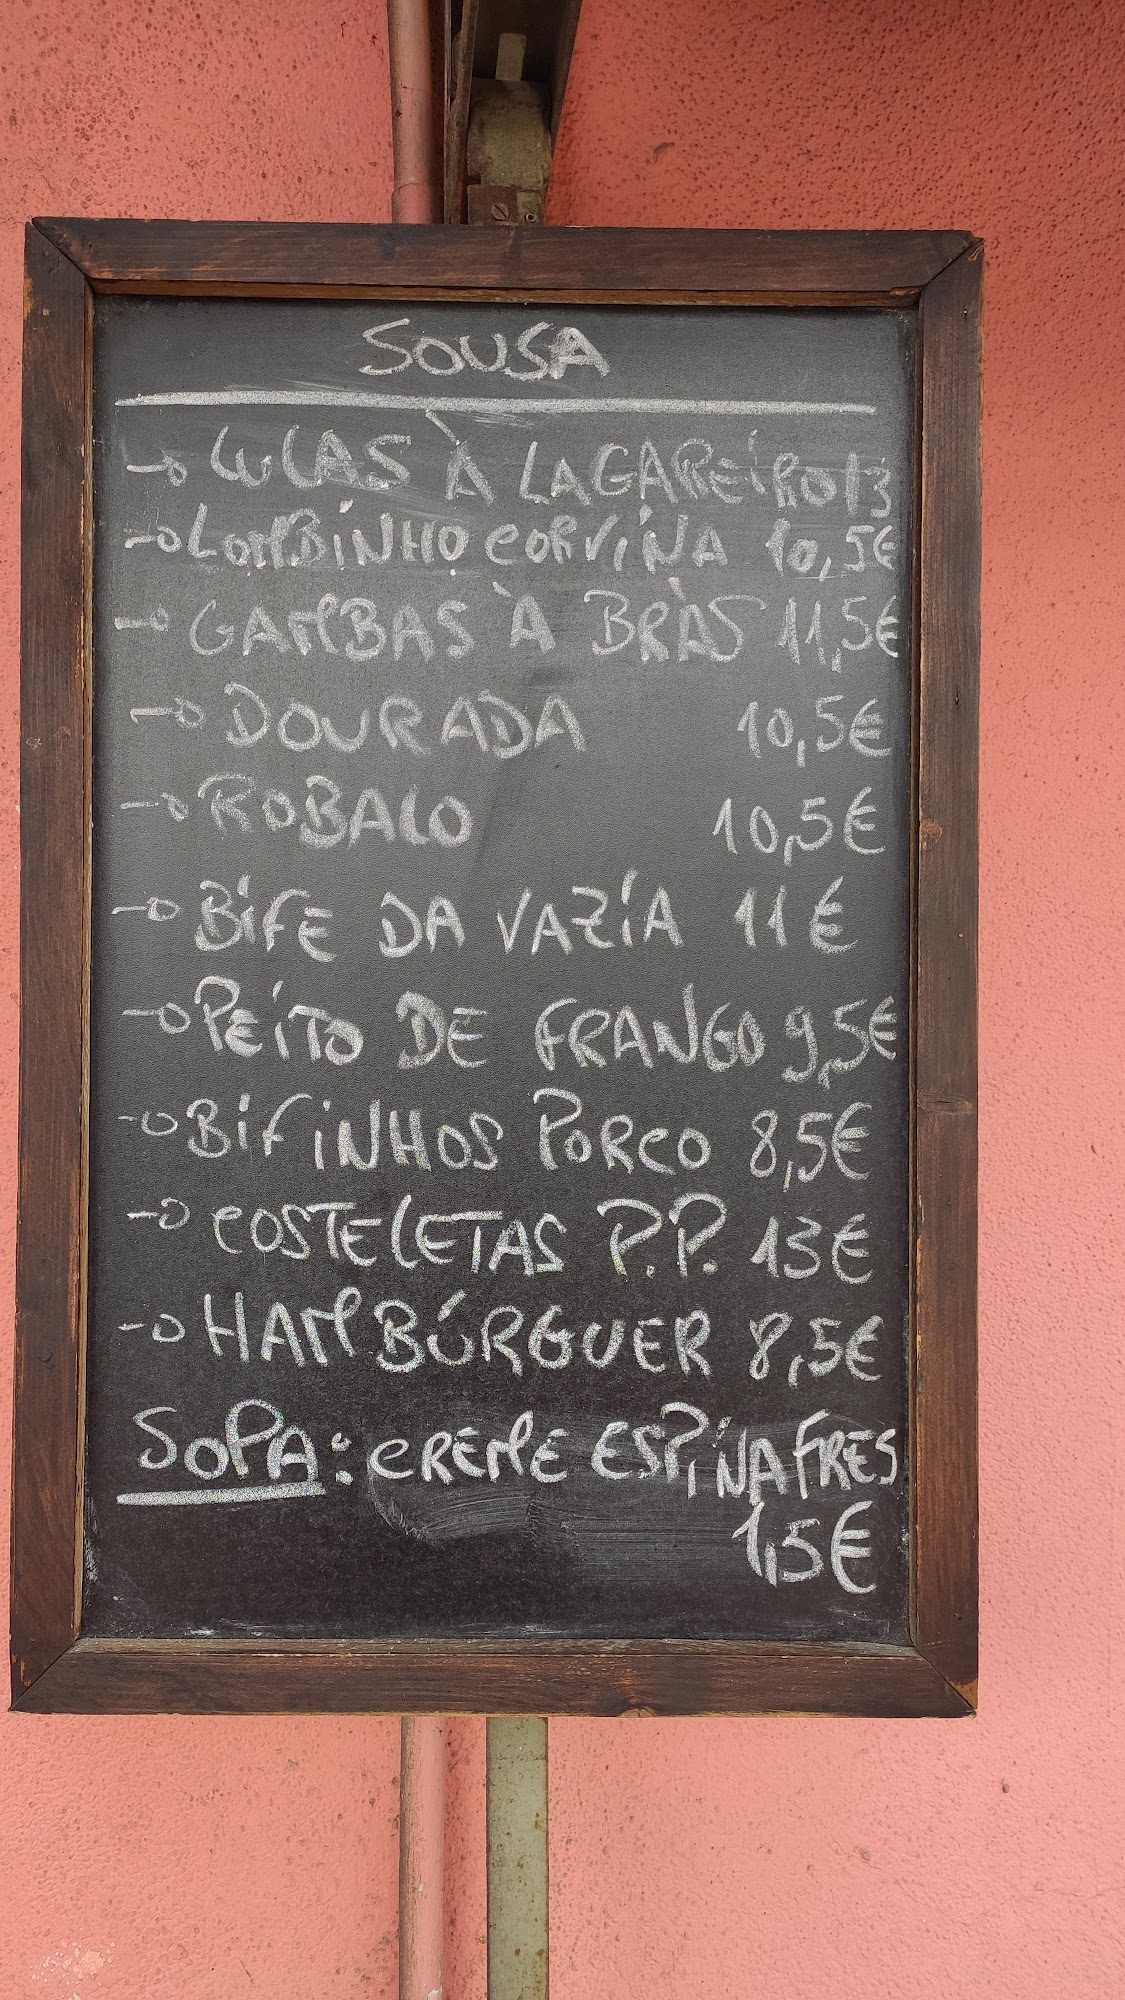 SOUSA
LULAS À LAGAREIRO 13
LOMBINHO CORVINA 10,5€
GAMBAS À BRÀS 11,5€
DOURADA 10,5€
ROBALO 10,5€
BIFE DA VAZIA 11€
PEITO DE FRANGO 9,5€
BIFINHOS PORCO 8,5€
COSTELETAS P.P. 13€
HAMBÚRGUER 8,5€
SOPA: CREME ESPINAFRES
1,5€